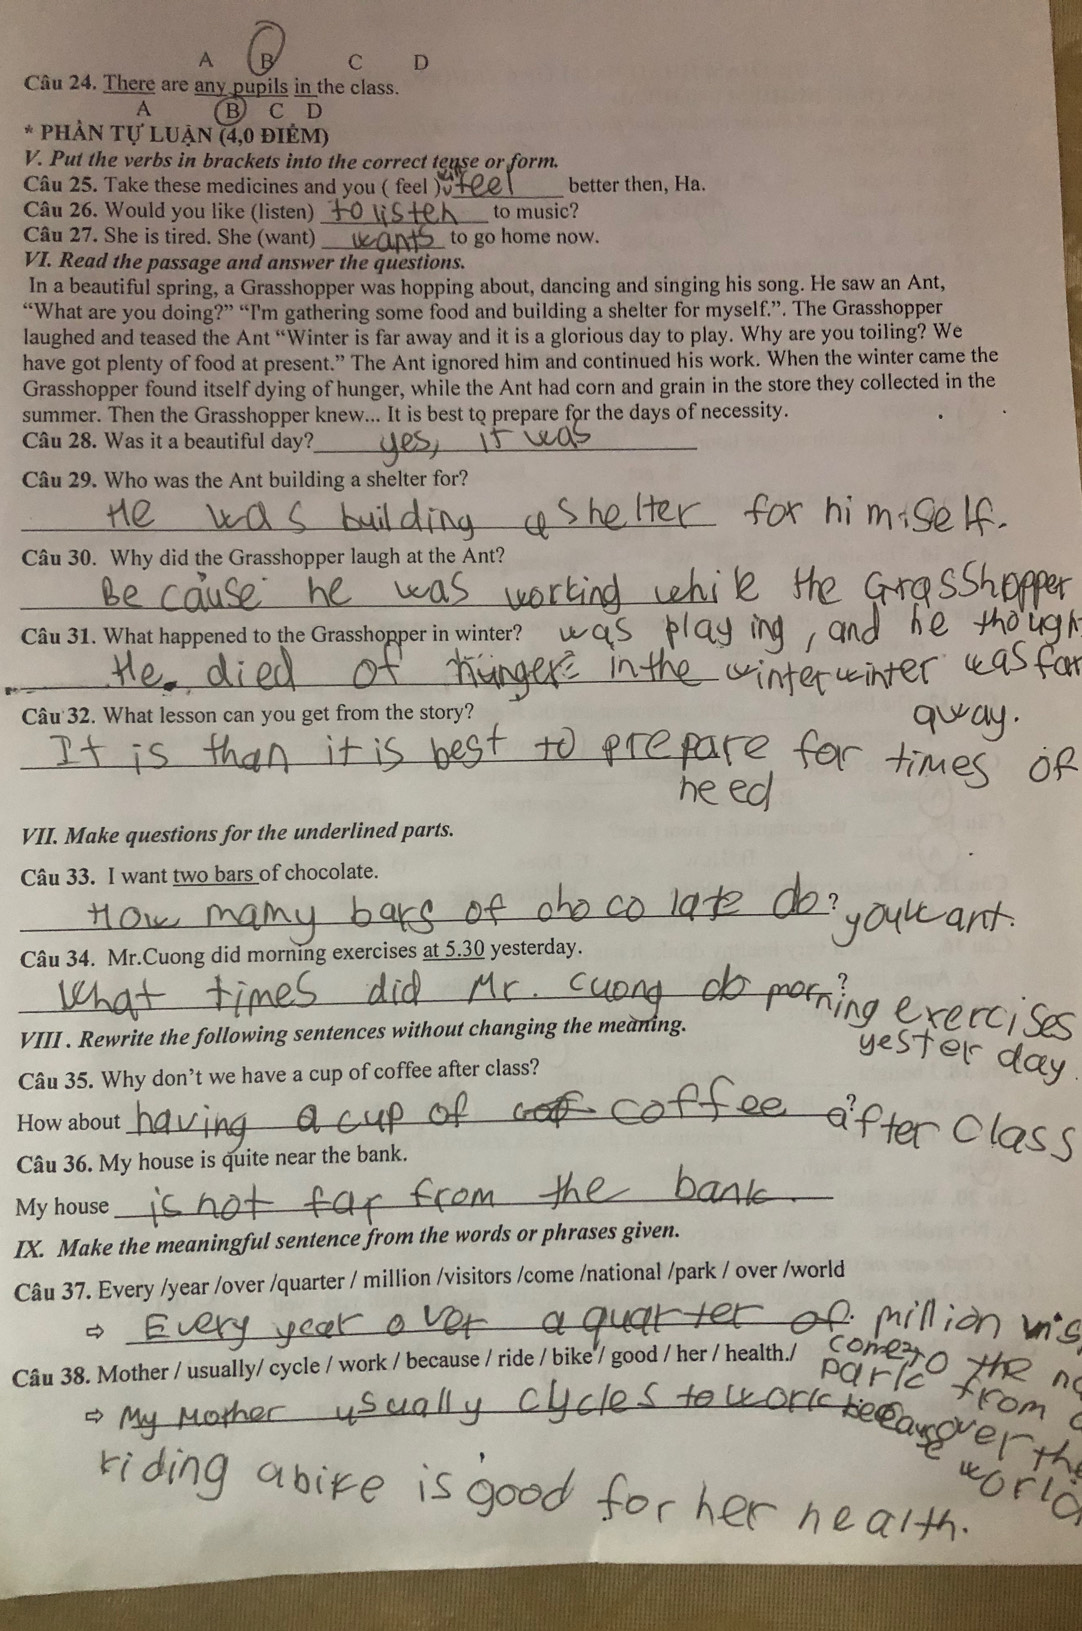 A B C D
Câu 24. There are any pupils in the class.
A B C D
* PHẦN TỰ LUẬN (4,0 ĐIỂM)
V. Put the verbs in brackets into the correct tense or form.
Câu 25. Take these medicines and you ( feel ) will feel better then, Ha.
Câu 26. Would you like (listen) to listen to music?
Câu 27. She is tired. She (want) wants to go home now.
VI. Read the passage and answer the questions.
In a beautiful spring, a Grasshopper was hopping about, dancing and singing his song. He saw an Ant,
“What are you doing?” “I'm gathering some food and building a shelter for myself.”. The Grasshopper
laughed and teased the Ant “Winter is far away and it is a glorious day to play. Why are you toiling? We
have got plenty of food at present.” The Ant ignored him and continued his work. When the winter came the
Grasshopper found itself dying of hunger, while the Ant had corn and grain in the store they collected in the
summer. Then the Grasshopper knew... It is best to prepare for the days of necessity.
Câu 28. Was it a beautiful day? yes, it was
Câu 29. Who was the Ant building a shelter for?
He was building a shelter for himself.
Câu 30. Why did the Grasshopper laugh at the Ant?
Because he was working while the Grasshopper
was playing, and he though
winter was far
away.
Câu 31. What happened to the Grasshopper in winter?
He died of hunger in the winter
Câu 32. What lesson can you get from the story?
It is than it is best to prepare for times of
need
VII. Make questions for the underlined parts.
Câu 33. I want two bars of chocolate.
How mamy bars of chocolate do you want?
Câu 34. Mr.Cuong did morning exercises at 5.30 yesterday.
What times did Mr. Cuong do morning exercises
yesterday?
VIII . Rewrite the following sentences without changing the meaning.
Câu 35. Why don’t we have a cup of coffee after class?
How about having a cup of coffee after class?
Câu 36. My house is quite near the bank.
My house is not far from the bank.
IX. Make the meaningful sentence from the words or phrases given.
Câu 37. Every /year /over /quarter / million /visitors /come /national /park / over /world
⇨ Every year over a quarter of million vis
come to the na
park from
over the
world
Câu 38. Mother / usually/ cycle / work / because / ride / bike / good / her / health./
⇨ My Mother usually cycles to work because
riding a bike is good for her health.